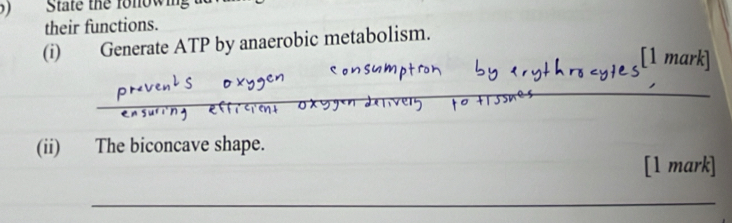 b) State the following
their functions.
(i) Generate ATP by anaerobic metabolism.
[1 mark]
prevents oxygen consumption by erythrocytes,
ensuring efficient oxygen delivery to tissues
(ii) The biconcave shape.
[1 mark]